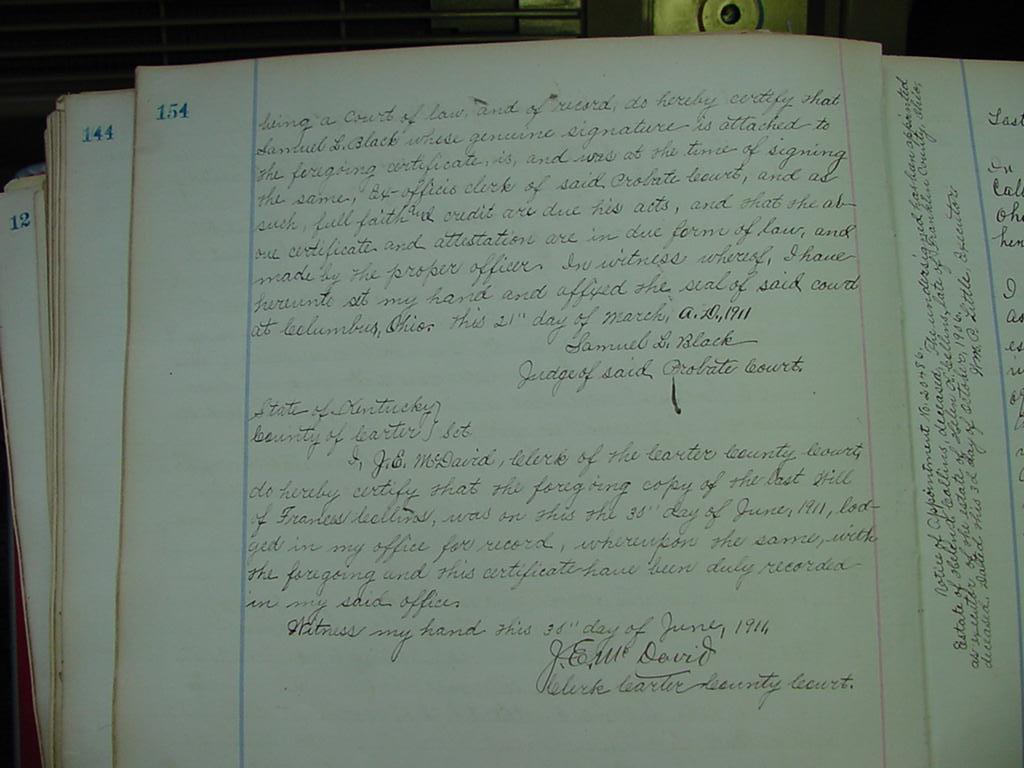 154
144
12
being a Court of law, and of record, do hereby certify that
Samuel L. Black whose genuine signature is attached to
the foregoing certificate, is, and was at the time of signing
the same, Ex-officio clerk of said Probate Court, and as
such, full faith and credit are due his acts, and that the ab-
ove certificate and attestation are in due form of law, and
made by the proper officer. In witness whereof, I have
hereunto set my hand and affixed the seal of said court
at Columbus, Ohio. This 21" day of March, A.D., 1911
Samuel L. Black
Judge of said Probate Court.
State of Kentucky }
County of Carter } Sct.
I, J.E. McDavid, Clerk of the Carter County Court,
do hereby certify that the foregoing copy of the last Will
of Frances Collins, was on this the 30" day of June, 1911, lod-
ged in my office for record, whereupon the same, with
the foregoing and this certificate have been duly recorded
in my said office.
Witness my hand this 30" day of June, 1911,
J.E. McDavid
Clerk Carter County Court.
Notice of Appointment No. The undersigned has been appointed
Estate of Collins, deceased. late of Franklin County, Ohio,
as of the estate of Collins
deceased. Dated this 3d day of October, 1936. Wm. B. Little Executor
Last